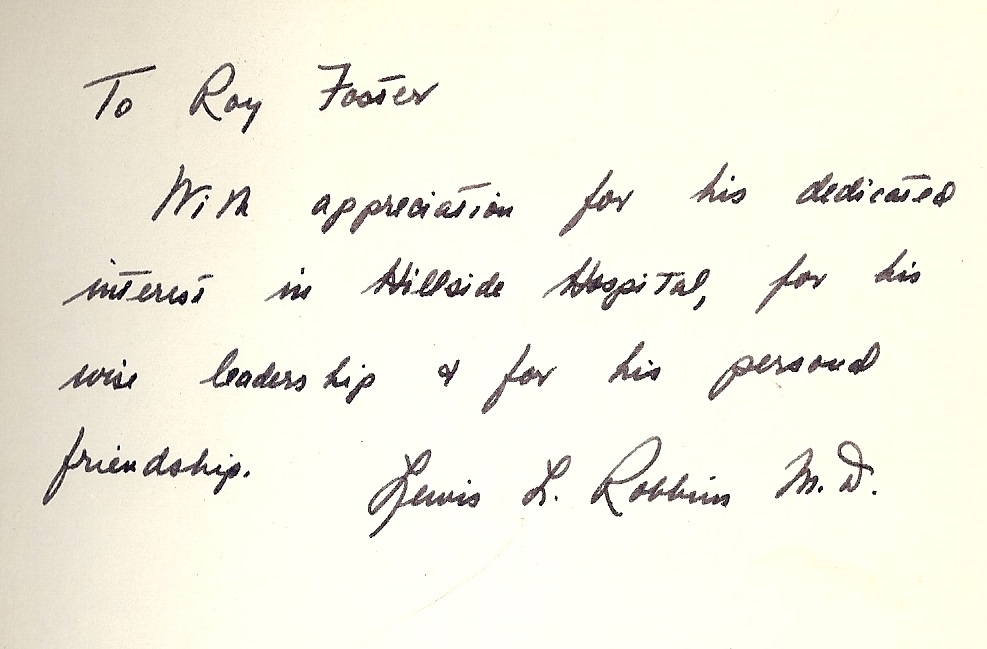 To Roy Foster
With appreciation for his dedicated
interest in Hillside Hospital, for his
wise leadership & for his personal
friendship.
Lewis L. Robbins M.D.